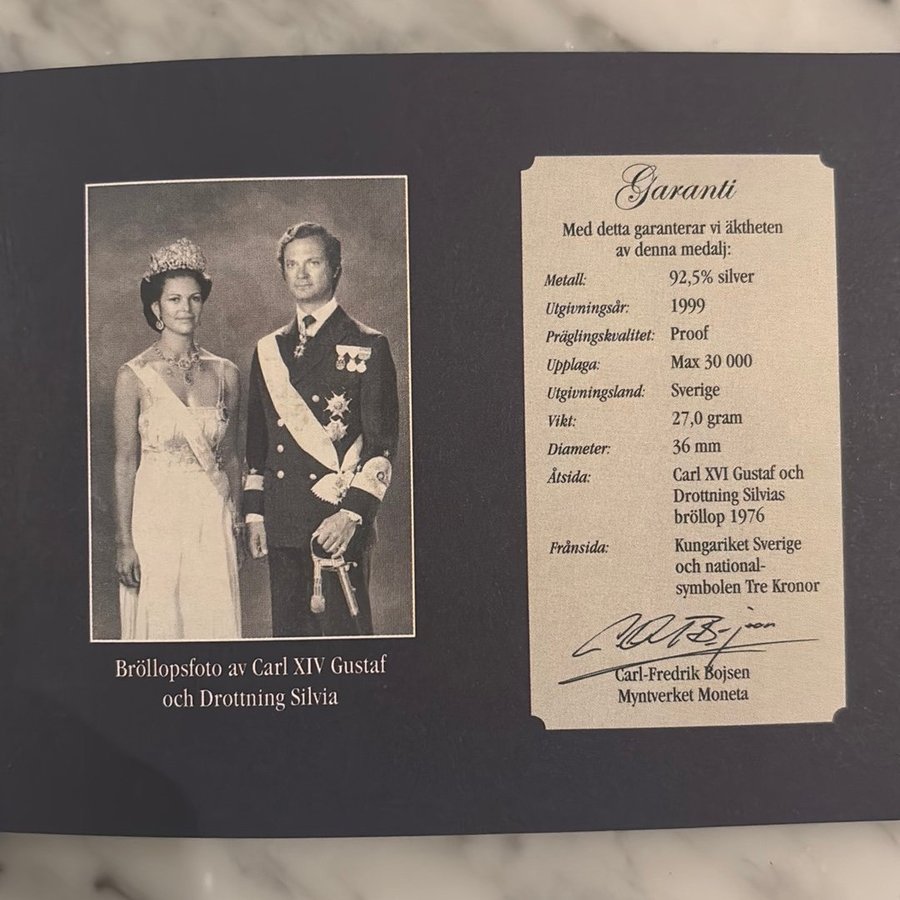 Bröllopsfoto av Carl XIV Gustaf
och Drottning Silvia
Garanti
Med detta garanterar vi äktheten
av denna medalj:
Metall: 92,5% silver
Utgivningsår: 1999
Präglingskvalitet: Proof
Upplaga: Max 30 000
Utgivningsland: Sverige
Vikt: 27,0 gram
Diameter: 36 mm
Åtsida: Carl XVI Gustaf och
Drottning Silvias
bröllop 1976
Frånsida: Kungariket Sverige
och national-
symbolen Tre Kronor
Carl-Fredrik Bojsen
Myntverket Moneta